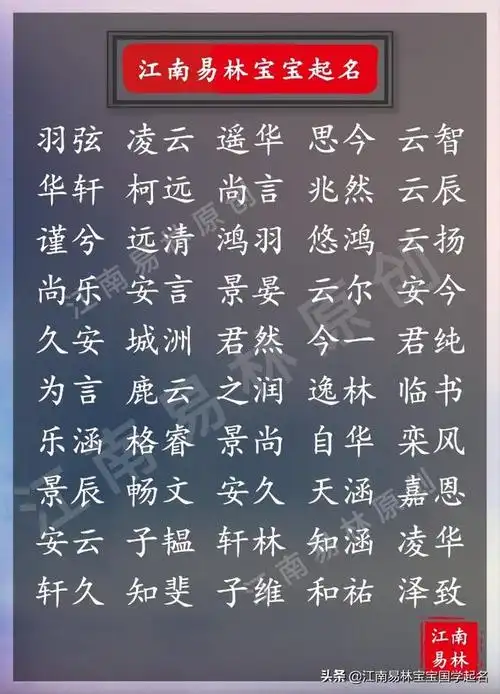 江南易林宝宝起名
羽弦 凌云 遥华 思今 云智
华轩 柯远 尚言 兆然 云辰
谨兮 远清 鸿羽 悠鸿 云扬
尚乐 安言 景晏 云尔 安今
久安 城洲 君然 今一 君纯
为言 鹿云 之润 逸林 临书
乐涵 格睿 景尚 自华 栾风
景辰 畅文 安久 天涵 嘉恩
安云 子韫 轩林 知涵 凌华
轩久 知斐 子维 和祐 泽致
江南易林原创
江南易林原创
江南易林原创
江南
易林
头条 @江南易林宝宝国学起名